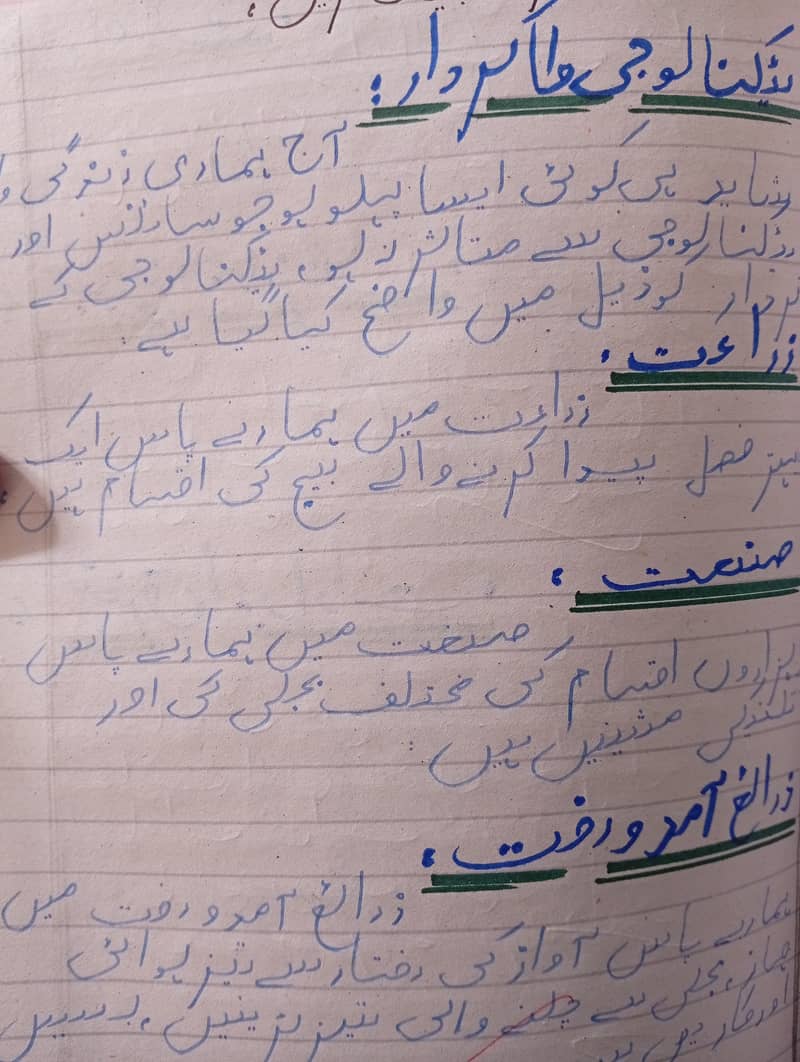 ٹیکنالوجی کا کردار:
آج ہماری زندگی
شاید ہی کوئی ایسا پہلو ہو جو سائنس اور
ٹیکنالوجی سے متاثر نہ ہو، ٹیکنالوجی کے
کردار کو ذیل میں واضح کیا گیا ہے۔
زراعت:
زراعت میں ہمارے پاس ایک
بہتر فصل پیدا کرنے والے بیج کی اقسام ہیں۔
صنعت:
صنعت میں ہمارے پاس
ہزاروں اقسام کی مختلف بجلی کی اور
مشینیں ہیں۔
ذرائع آمدورفت:
ذرائع آمدورفت میں
ہمارے پاس آواز کی رفتار سے تیز ہوائی
جہاز، بجلی سے چلنے والی تیز ٹرینیں، بسیں
اور کاریں